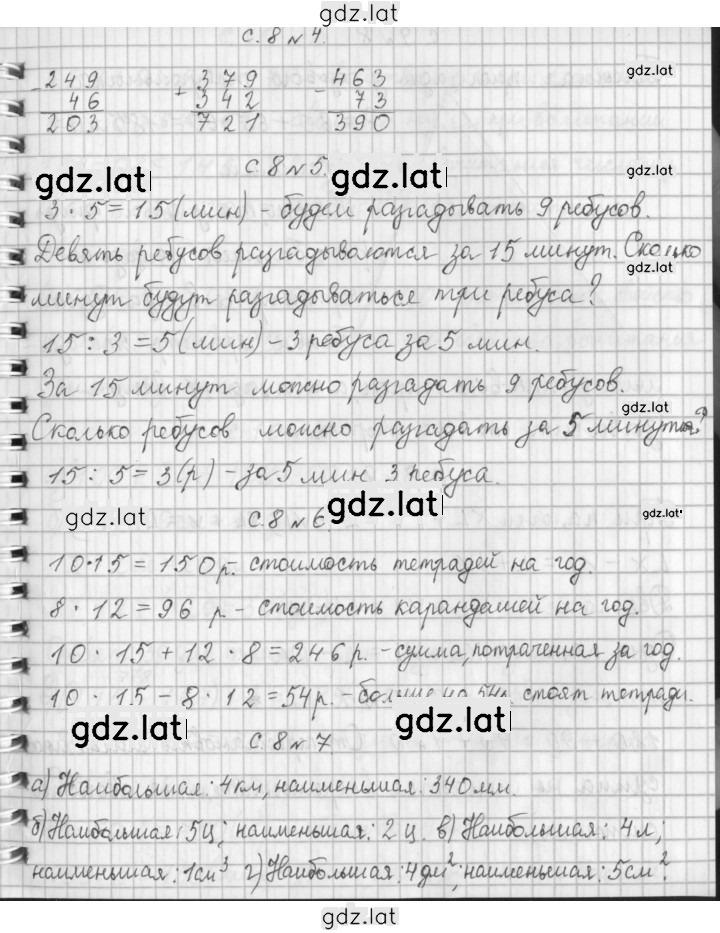 gdz.lat
с. 8 № 4.
- 249 + 379 - 463 gdz.lat
46 342 73
203 721 390
с. 8 № 5. gdz.lat
gdz.lat gdz.lat
3 · 5 = 15 (мин) - будем разгадывать 9 ребусов.
Девять ребусов разгадываются за 15 минут. Сколько
gdz.lat
минут будут разгадываться три ребуса?
15 : 3 = 5 (мин) - 3 ребуса за 5 мин.
За 15 минут можно разгадать 9 ребусов.
gdz.lat
Сколько ребусов можно разгадать за 5 минут?
15 : 5 = 3 (р) - за 5 мин 3 ребуса.
gdz.lat с. 8 № 6. gdz.lat gdz.lat
10·15 = 150 р. стоимость тетрадей на год.
8 · 12 = 96 р - стоимость карандашей на год.
10 · 15 + 12 · 8 = 246 р. - сумма, потраченная за год.
10 · 15 - 8 · 12 = 54 р. - больше на 54р. стоят тетради.
gdz.lat с. 8 № 7 gdz.lat
а) Наибольшая: 4 км, наименьшая: 340 мм.
б) Наибольшая: 5 ц; наименьшая: 2 ц. в) Наибольшая: 4 л;
наименьшая: 1 см³ г) Наибольшая: 4 дм²; наименьшая: 5 см².
gdz.lat